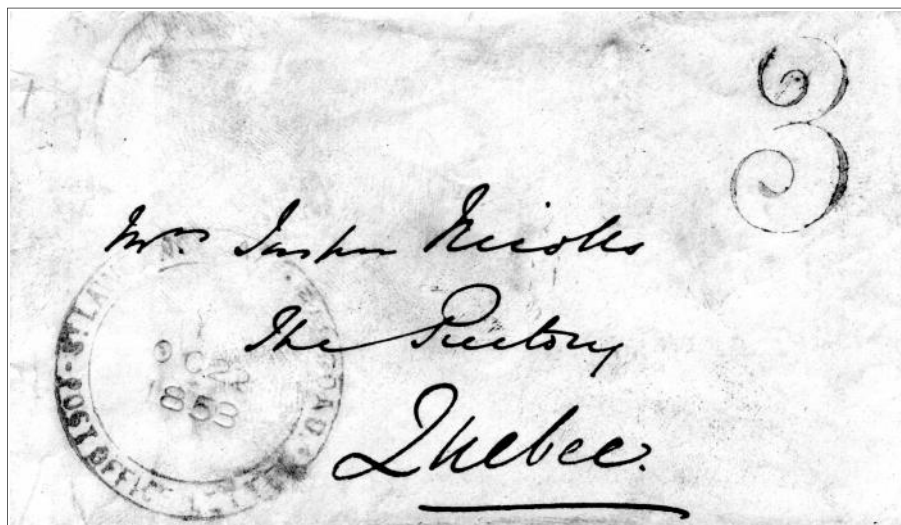 3
Mrs. Jasper Nicolls
The Rectory
Quebec.
ST. LAW
POST OFFICE
OC
1858